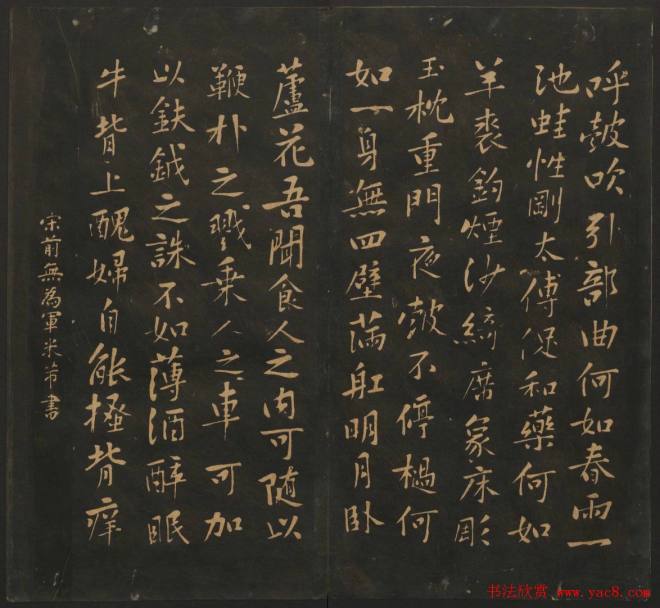 呼皷吹引部曲何如春雨一
池蛙性剛太傅促和藥何如
羊裘釣煙沙綺席象床彫
玉枕重門夜皷不停檛何
如一身無四壁滿舡明月卧
蘆花吾聞食人之肉可隨以
鞭朴之戮乘人之車可加
以鈇鉞之誅不如薄酒醉眠
牛背上醜婦自能搔背痒
宋前無為軍米芾書
书法欣赏 www.yac8.com